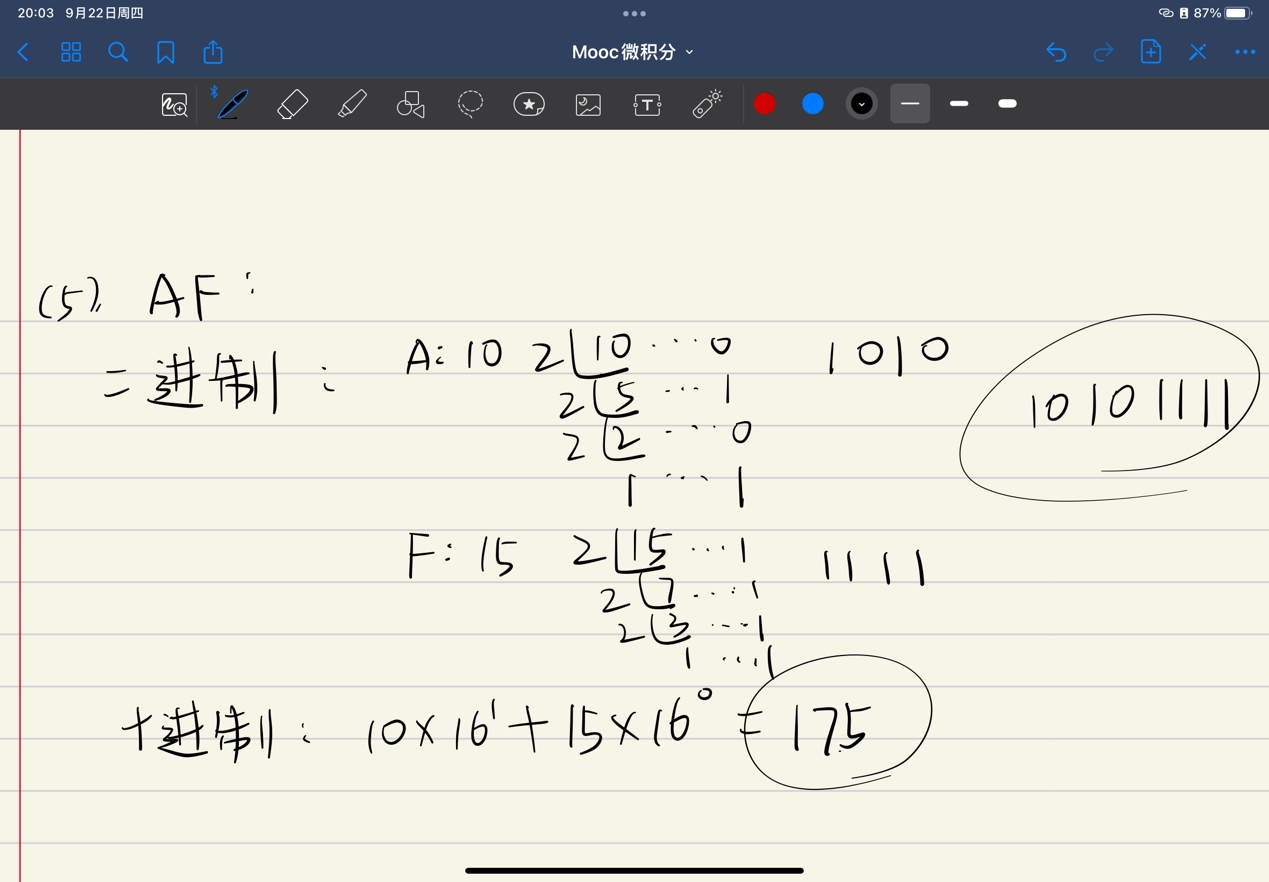 20:03 9月22日周四
87%
Mooc微积分
(5). AF:
二进制: A: 10 2 10 ... 0 1010
2 5 ... 1
2 2 ... 0
1 ... 1
10101111
F: 15 2 15 ... 1 1111
2 7 ... 1
2 3 ... 1
1 ... 1
十进制: 10×16¹+15×16⁰=175